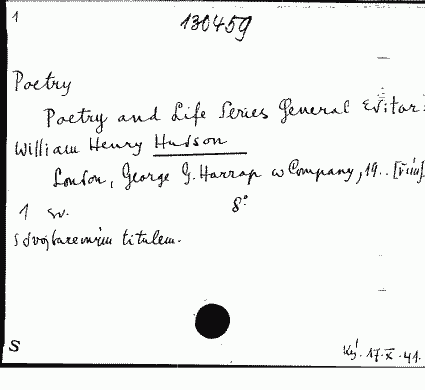 1
130459
Poetry
Poetry and Life Series General Editor:
William Henry Hudson
London, George G. Harrap & Company, 19.. [
1 sv. 8°
titulem.
S 17.X.41.